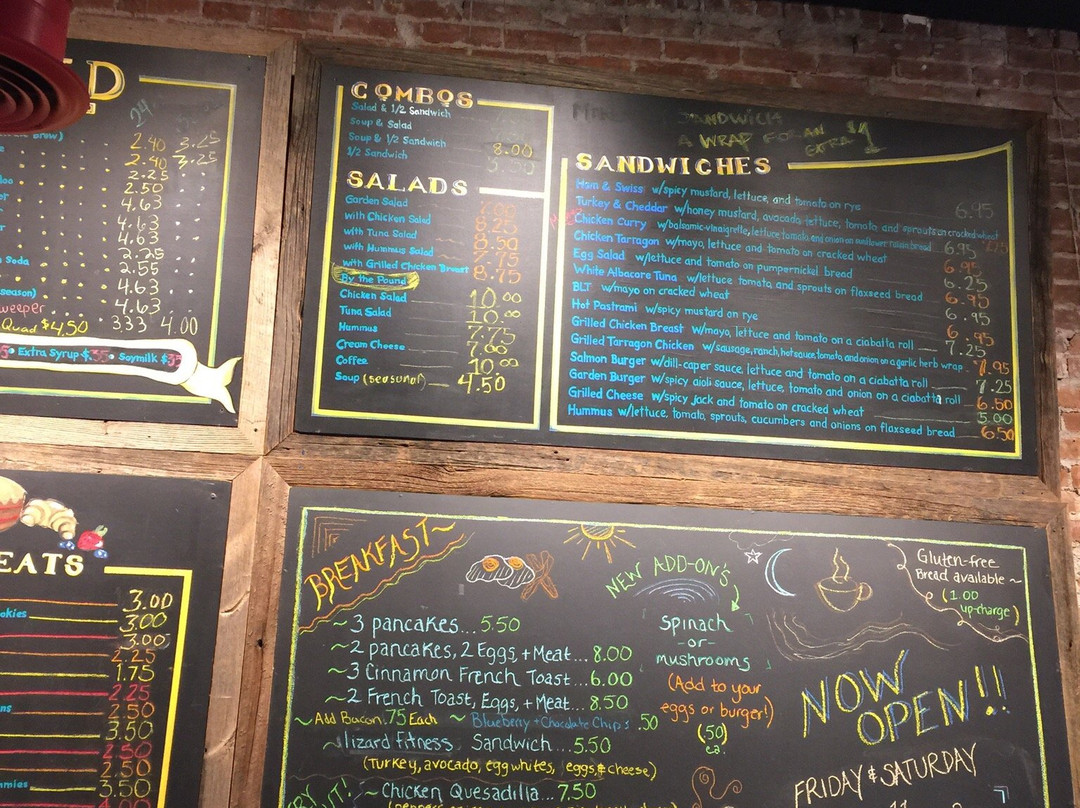 24
2.40 3.25
2.40 3.25
2.25
2.50
4.63
4.63
4.63
2.25
Soda 2.55
4.63
season) 4.63
3.33 4.00
Quad $4.50
Extra Syrup $.35 Soymilk $.35
COMBOS
Salad & 1/2 Sandwich
Soup & Salad
Soup & 1/2 Sandwich 8.00
1/2 Sandwich
SALADS
Garden Salad 7.00
with Chicken Salad 8.25
with Tuna Salad 8.50
with Hummus Salad 7.75
with Grilled Chicken Breast 8.75
By the Pound
Chicken Salad 10.00
Tuna Salad 10.00
Hummus 7.75
Cream Cheese 7.00
Coffee 10.00
Soup (seasonal) 4.50
SANDWICH
A WRAP FOR AN EXTRA $1
SANDWICHES
Ham & Swiss w/spicy mustard, lettuce, and tomato on rye 6.95
Turkey & Cheddar w/honey mustard, avocado, lettuce, tomato, and sprouts on cracked wheat
Chicken Curry w/balsamic-vinaigrette, lettuce tomato and onion on sunflower raisin bread 6.95
Chicken Tarragon w/mayo, lettuce and tomato on cracked wheat 6.95
Egg Salad w/lettuce and tomato on pumpernickel bread 6.25
White Albacore Tuna w/lettuce tomato, and sprouts on flaxseed bread 6.95
BLT w/mayo on cracked wheat 6.95
Hot Pastrami w/spicy mustard on rye 6.95
Grilled Chicken Breast w/mayo, lettuce and tomato on a ciabatta roll 7.25
Grilled Tarragon Chicken w/sausage, ranch, hot sauce, tomato, and onion on a garlic herb wrap 7.95
Salmon Burger w/dill-caper sauce, lettuce and tomato on a ciabatta roll 7.25
Garden Burger w/spicy aioli sauce, lettuce, tomato and onion on a ciabatta roll 6.50
Grilled Cheese w/spicy jack and tomato on cracked wheat 5.00
Hummus w/lettuce, tomato, sprouts, cucumbers and onions on flaxseed bread 6.50
EATS
3.00
okies 3.00
3.00
2.25
1.75
2.25
2.50
3.50
2.50
2.50
3.50
BREAKFAST~
~ 3 pancakes... 5.50
~2 pancakes, 2 Eggs, + Meat... 8.00
~ 3 Cinnamon French Toast... 6.00
~ 2 French Toast, Eggs, + Meat... 8.50
~ Add Bacon .75 Each ~ Blueberry + Chocolate Chips .50
~ lizard fitness Sandwich... 5.50
(Turkey, avocado, egg whites, eggs, & cheese)
~ Chicken Quesadilla... 7.50
NEW ADD-ON'S
Spinach
-or-
mushrooms
(Add to your
eggs or burger!)
(.50)
ea.
Gluten-free
Bread available ~
(1.00
up-charge)
NOW
OPEN!!
FRIDAY & SATURDAY